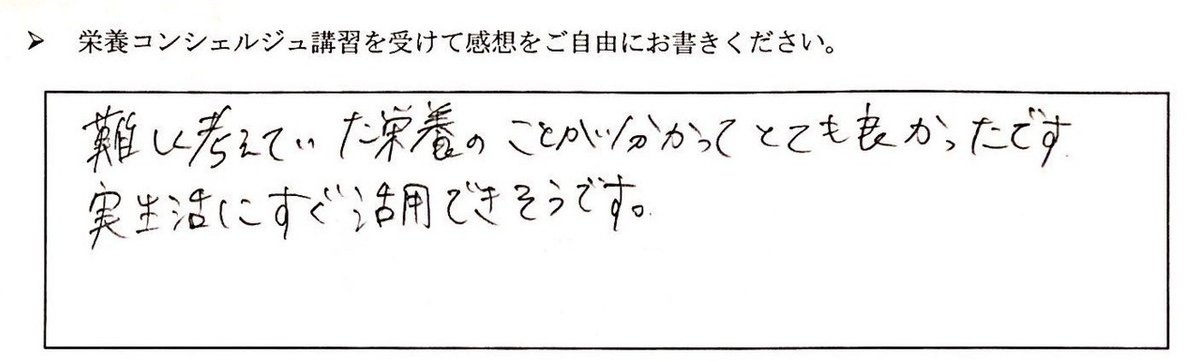 ➤ 栄養コンシェルジュ講習を受けて感想をご自由にお書きください。
難しく考えていた栄養のことが分かってとても良かったです
実生活にすぐ活用できそうです。